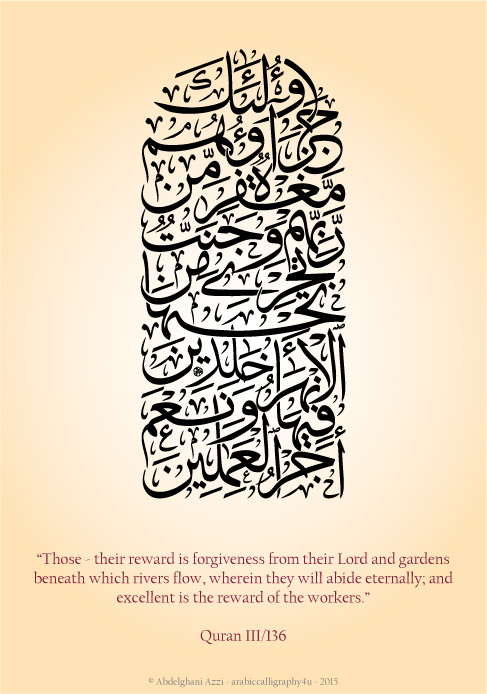 أُوْلَئِكَ
جَزَاؤُهُم
مَّغْفِرَةٌ مِّن
رَّبِّهِمْ وَجَنَّتٌ
تَجْرِى مِن
تَحْتِهَا
الْأَنْهَرُ خَلِدِينَ
فِيهَا وَنِعْمَ
أَجْرُ الْعَمِلِينَ
“Those - their reward is forgiveness from their Lord and gardens
beneath which rivers flow, wherein they will abide eternally; and
excellent is the reward of the workers.”
Quran III/136
© Abdelghani Azzi - arabiccalligraphy4u - 2015